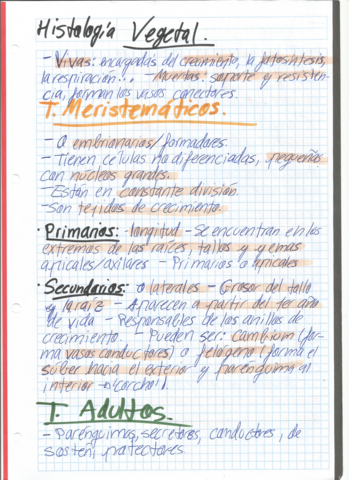 Histología Vegetal.
- Vivas: encargadas del crecimiento, la fotosíntesis,
la respiración... - Muertas: soporte y resisten-
cia, forman los vasos conectores.
T. Meristemáticos.
- O embrionarios/formadores.
- Tienen células no diferenciadas, pequeñas
con núcleos grandes.
- Están en constante división.
- Son tejidos de crecimiento.
· Primarios: - longitud - Se encuentran en los
extremos de las raíces, tallos y yemas
apicales/axilares - Primarios o apicales
· Secundarios: o laterales - Grosor del tallo
y la raíz - Aparecen a partir del 1er año
de vida - Responsables de los anillos de
crecimiento. - Pueden ser: cambium (for-
ma vasos conductores) o felógeno (forma el
súber hacia el exterior y parénquima al
interior → corcho).
T. Adultos.
- Parénquimas, secretores, conductores, de
sostén, protectores.